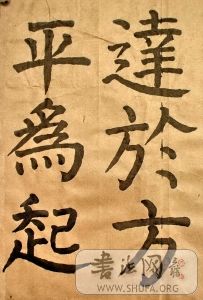 達於方
平為起
书法网
WWW.SHUFA.ORG